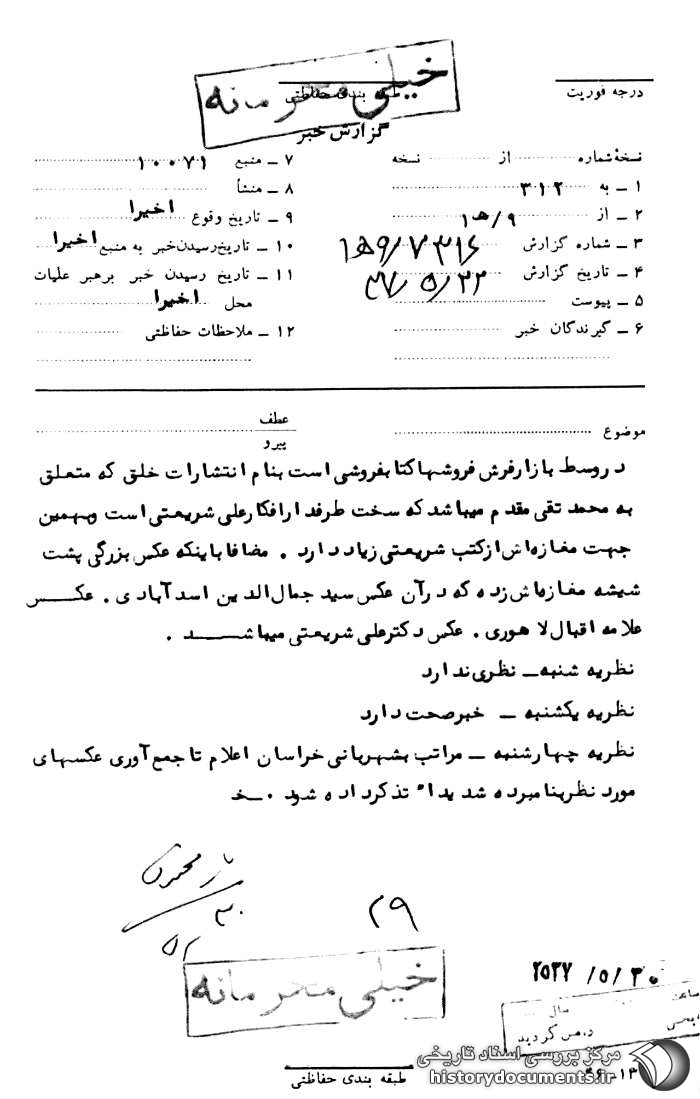 خیلی محرمانه
طبقه بندی حفاظتی
درجه فوریت
گزارش خبر
نسخهٔ شماره از نسخه
۱ ـ به ۳۱۲
۲ ـ از ۹/ﻫ۱
۳ ـ شماره گزارش ۷۳۱۶/ﻫ۱۹
۴ ـ تاریخ گزارش ۳۷/۵/۲۲
۵ ـ پیوست
۶ ـ گیرندگان خبر
۷ ـ منبع ۱۰۰۷۱
۸ ـ منشأ
۹ ـ تاریخ وقوع اخیرا
۱۰ ـ تاریخ رسیدن خبر به منبع اخیرا
۱۱ ـ تاریخ رسیدن خبر برهبر عملیات
محل اخیرا
۱۲ ـ ملاحظات حفاظتی
موضوع
عطف
پیرو
دروسط بازارفرش فروشها کتابفروشی است بنام انتشارات خلق که متعلق
به محمد تقی مقدم میباشد که سخت طرفدار افکارعلی شریعتی است وبهمین
جهت مغازه‌اش ازکتب شریعتی زیاد دارد . مضافا باینکه عکس بزرگی پشت
شیشه مغازه‌اش زده که درآن عکس سید جمال الدین اسدآبادی . عکس
علامه اقبال لاهوری . عکس دکترعلی شریعتی میباشد .
نظریه شنبه ـ نظری ندارد
نظریه یکشنبه ـ خبرصحت دارد
نظریه چهارشنبه ـ مراتب بشهربانی خراسان اعلام تا جمع آوری عکسهای
مورد نظربنامبرده شدیدا" تذکرداده شود .ـخ
۲۹
۲۵۳۷/۵/۳۰
خیلی محرمانه
طبقه بندی حفاظتی
مرکز بررسی اسناد تاریخی
historydocuments.ir